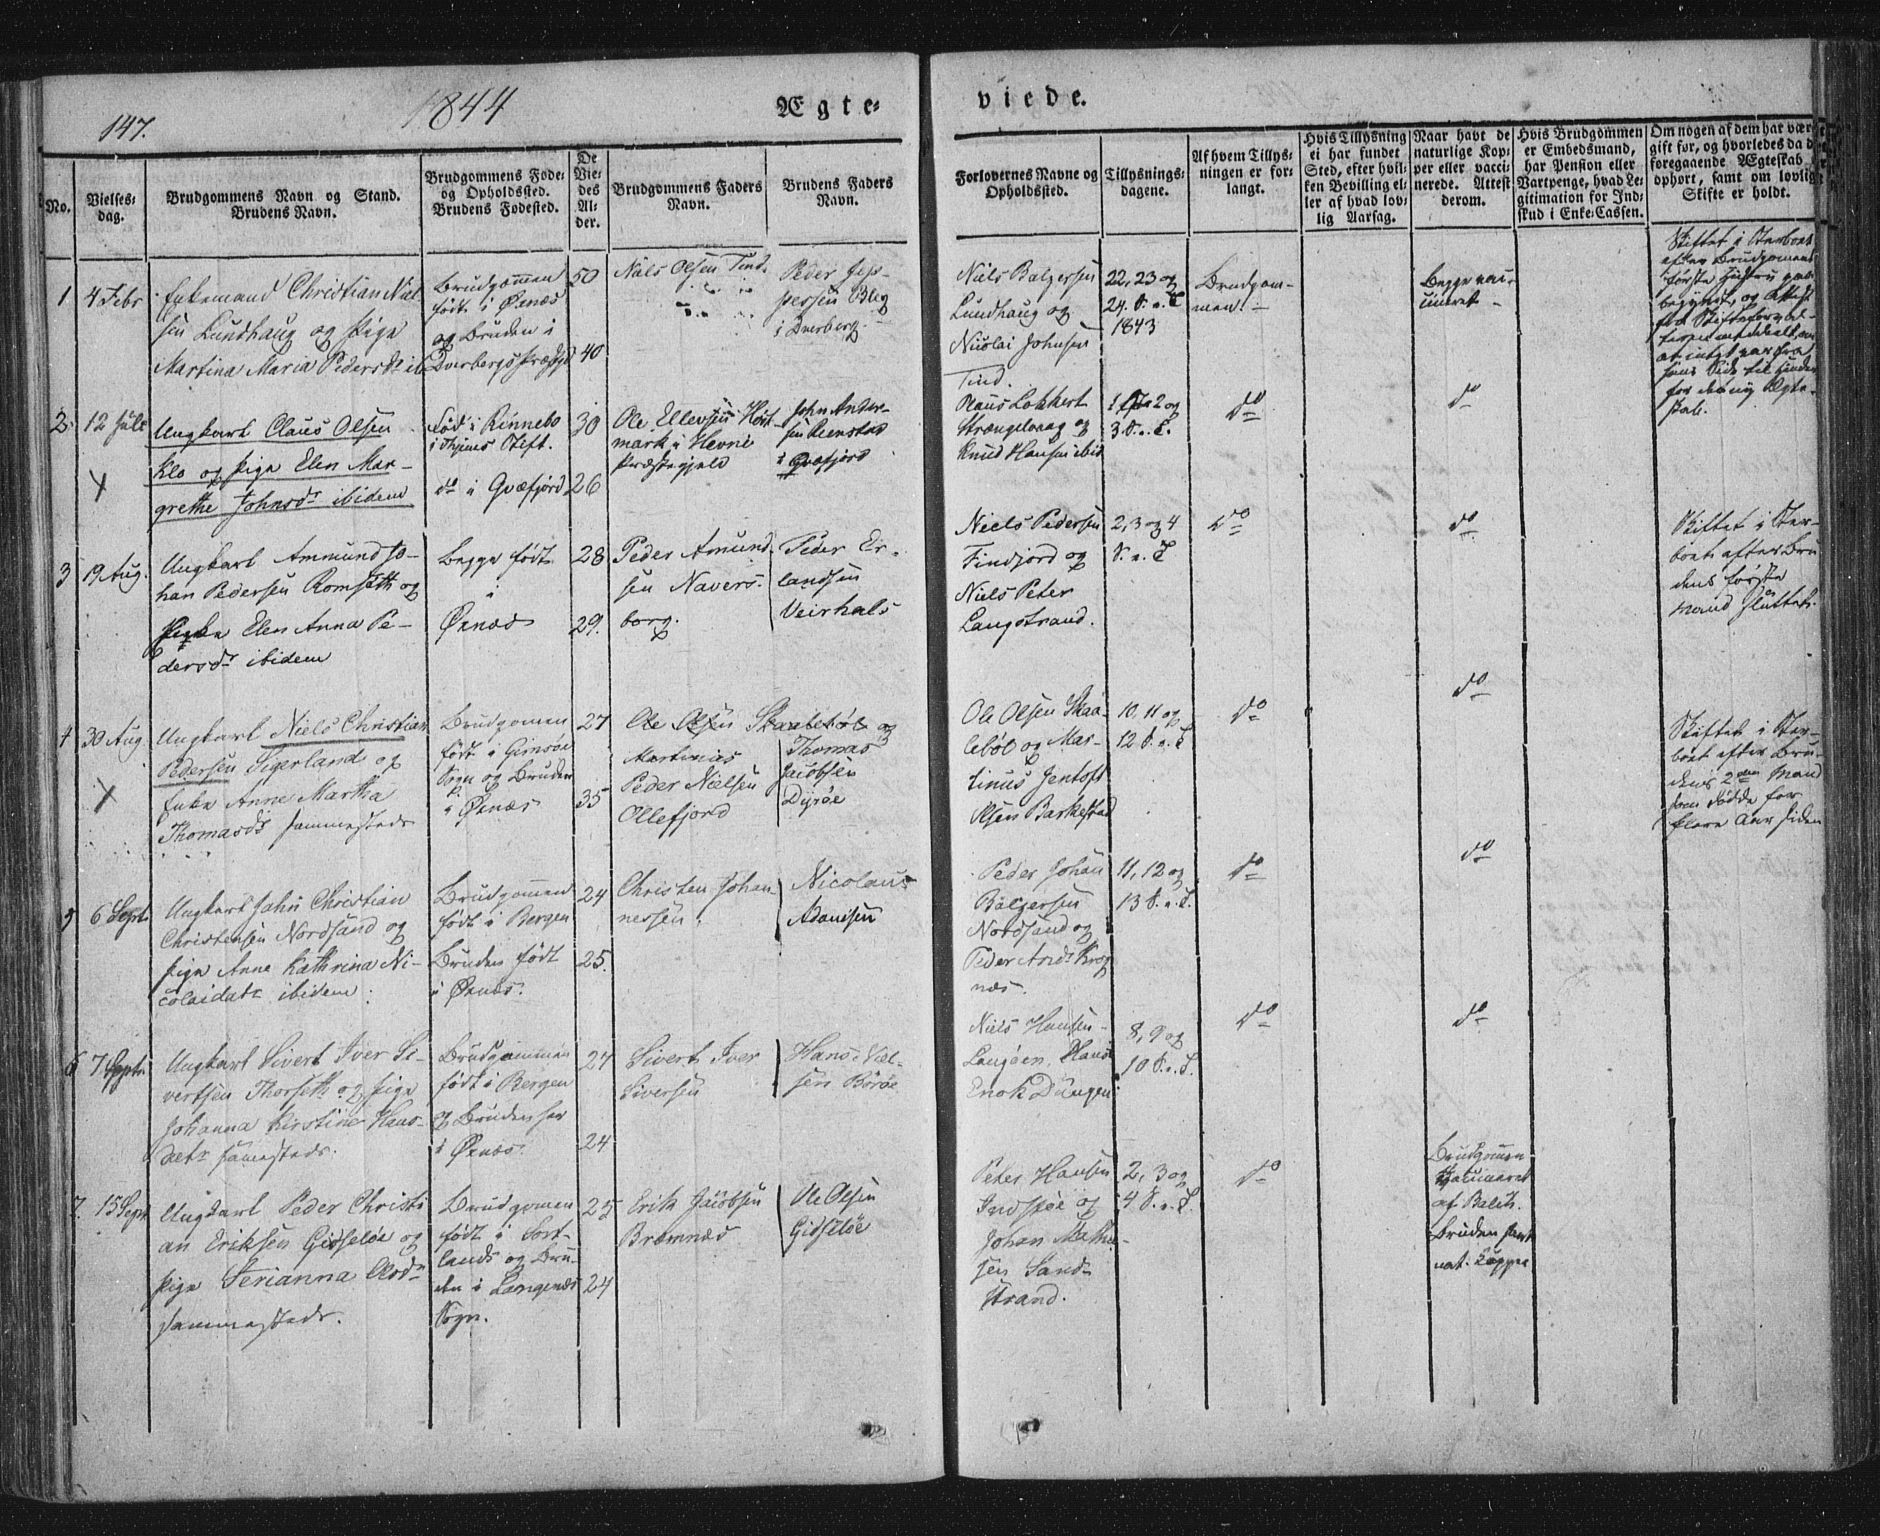 147.
1844
Ægte-
viede.
No.
Vielses-
dag.
Brudgommens Navn og Stand.
Brudens Navn.
Brudgommens Føde-
og Opholdssted.
Brudens Fødested.
De
Vie-
des
Al-
der.
Brudgommens Faders
Navn.
Brudens Faders
Navn.
Forlovernes Navne og
Opholdssted.
Tillysnings-
dagene.
Af hvem Tillys-
ningen er for-
langt.
Hvis Tillysning
ei har fundet
Sted, efter hvil-
ken Bevilling el-
ler af hvad lov-
lig Aarsag.
Naar havt de
naturlige Kop-
per eller vacci-
nerede. Attest
derom.
Hvis Brudgommen
er Embedsmand,
har Pension eller
Vartpenge, hvad Le-
gitimation for Ind-
skud i Enke-Cassen.
Om nogen af dem har være
gift før, og hvorledes da d
foregaaende Ægteskab
ophørt, samt om lovlig
Skifte er holdt.
1.
4 Febr
Enkemand Christian Niel
sen Lundhaug og Pige
Martina Maria Pedersdr ib
Brudgommen
født i Øxnæs
og Bruden i
Dverbergs Præstgd
50
40
Niels Olsen Tind.
Peder Jep-
persen Bleg
i Dverberg.
Niels Balzersen
Lundhaug og
Nicolai Johnsen
Tind.
22, 23 og
24. S. e. T.
1843
Brudgom-
men.
Begge vac-
cineret
Skiftet i Sterboet
efter Brudgommens
første Hustru var
begyndt, og Attest
fra Skifteforval-
teren meddelt om
at intet var fra
hans Side til Hinder
for dette ny Ægte-
skab.
2.
12 Juli
Ungkarl Claus Olsen
Klo og Pige Elen Mar-
grethe Johnsdr ibidem
Fød i Rinnebo
i Thjems Stift.
do i Qvæfjord
30
26
Ole Ellevsen Hest
mark i Hevne
Præstegjeld
John Ander-
sen Reenstad
i Qvæfjord
Claus Lokkert
Strængelvaag og
Knud Hansen ibid
1, 2 og
3. S. e. T.
do
do
3
19 Aug.
Ungkarl Ammund Jo-
han Pedersen Romseth og
Enke Elen Anna Pe-
dersdr ibidem
Begge født
i
Øxnæs
28
29.
Peder Amund
sen Navers
borg.
Peder Er-
landsen
Veirhals
Niels Pedersen
Findjord og
Niels Peter
Langstrand.
2, 3 og 4
S. e. T
do
do
Skiftet i Ster-
boet efter Bru
dens første
Mand sluttet.
4
30 Aug
Ungkarl Niels Christian
Pedersen Tigerland og
Enke Anne Martha
Thomasdr sammesteds
Brudgommen
født i Gimsøe
Sogn og Bruden
i Øxnæs
27
35
Ole Olsen Skaalebøl og
Martinus
Peder Nielsen
Ollefjord
Thomas
Jacobsen
Dyrøe
Ole Olsen Skaa-
lebøl og Mar-
tinus Jentoft
Olsen Barkestad
10, 11 og
12 S. e. T
do
do
Skiftet i Ster-
boet efter Bru-
dens 2den Mand
som døde for
flere Aar siden
5
6 Sept.
Ungkarl John Christian
Christensen Nordsand og
Pige Anne Kathrina Ni-
colaidatr ibidem
Brudgommen
født i Bergen
Bruden født
i Øxnæs.
24
25.
Christen Johan
nessen.
Nicolaus
Adamsen
Peder Johan
Balzersen
Nordsand og
Peder Andr Krog
næs.
11, 12 og
13 S. e. T.
do
do
6
7 Sept.
Ungkarl Sivert Iver Si-
vertsen Thorseth og Pige
Johanna Kirstine Hans-
datr sammesteds.
Brudgommen
født i Bergen
og Bruden her
i Øxnæs.
27
24
Sivert Iver
Siversen
Hans Niel-
sen Børøe
Niels Hansen
Langøen, Hans
Enok Düngen
8, 9 og
10 S. e. T.
do
do
7.
15 Sept
Ungkarl Peder Christi
an Eriksen Gisseløe og
Pige Serianna Olsdr
sammesteds.
Brudgommen
født i Sort-
lands og Bru-
den i Langenæs
Sogn.
25
24
Erik Jacobsen
Bræmnæs
Ole Olsen
Gidseløe
Peter Hansen
Indstøe og
Johan Mathi-
sen Sand-
strand.
2, 3 og
4 S. e. T.
do
Brudgommen
vaccineret
af Balch.
Bruden havt
nat. Kopper